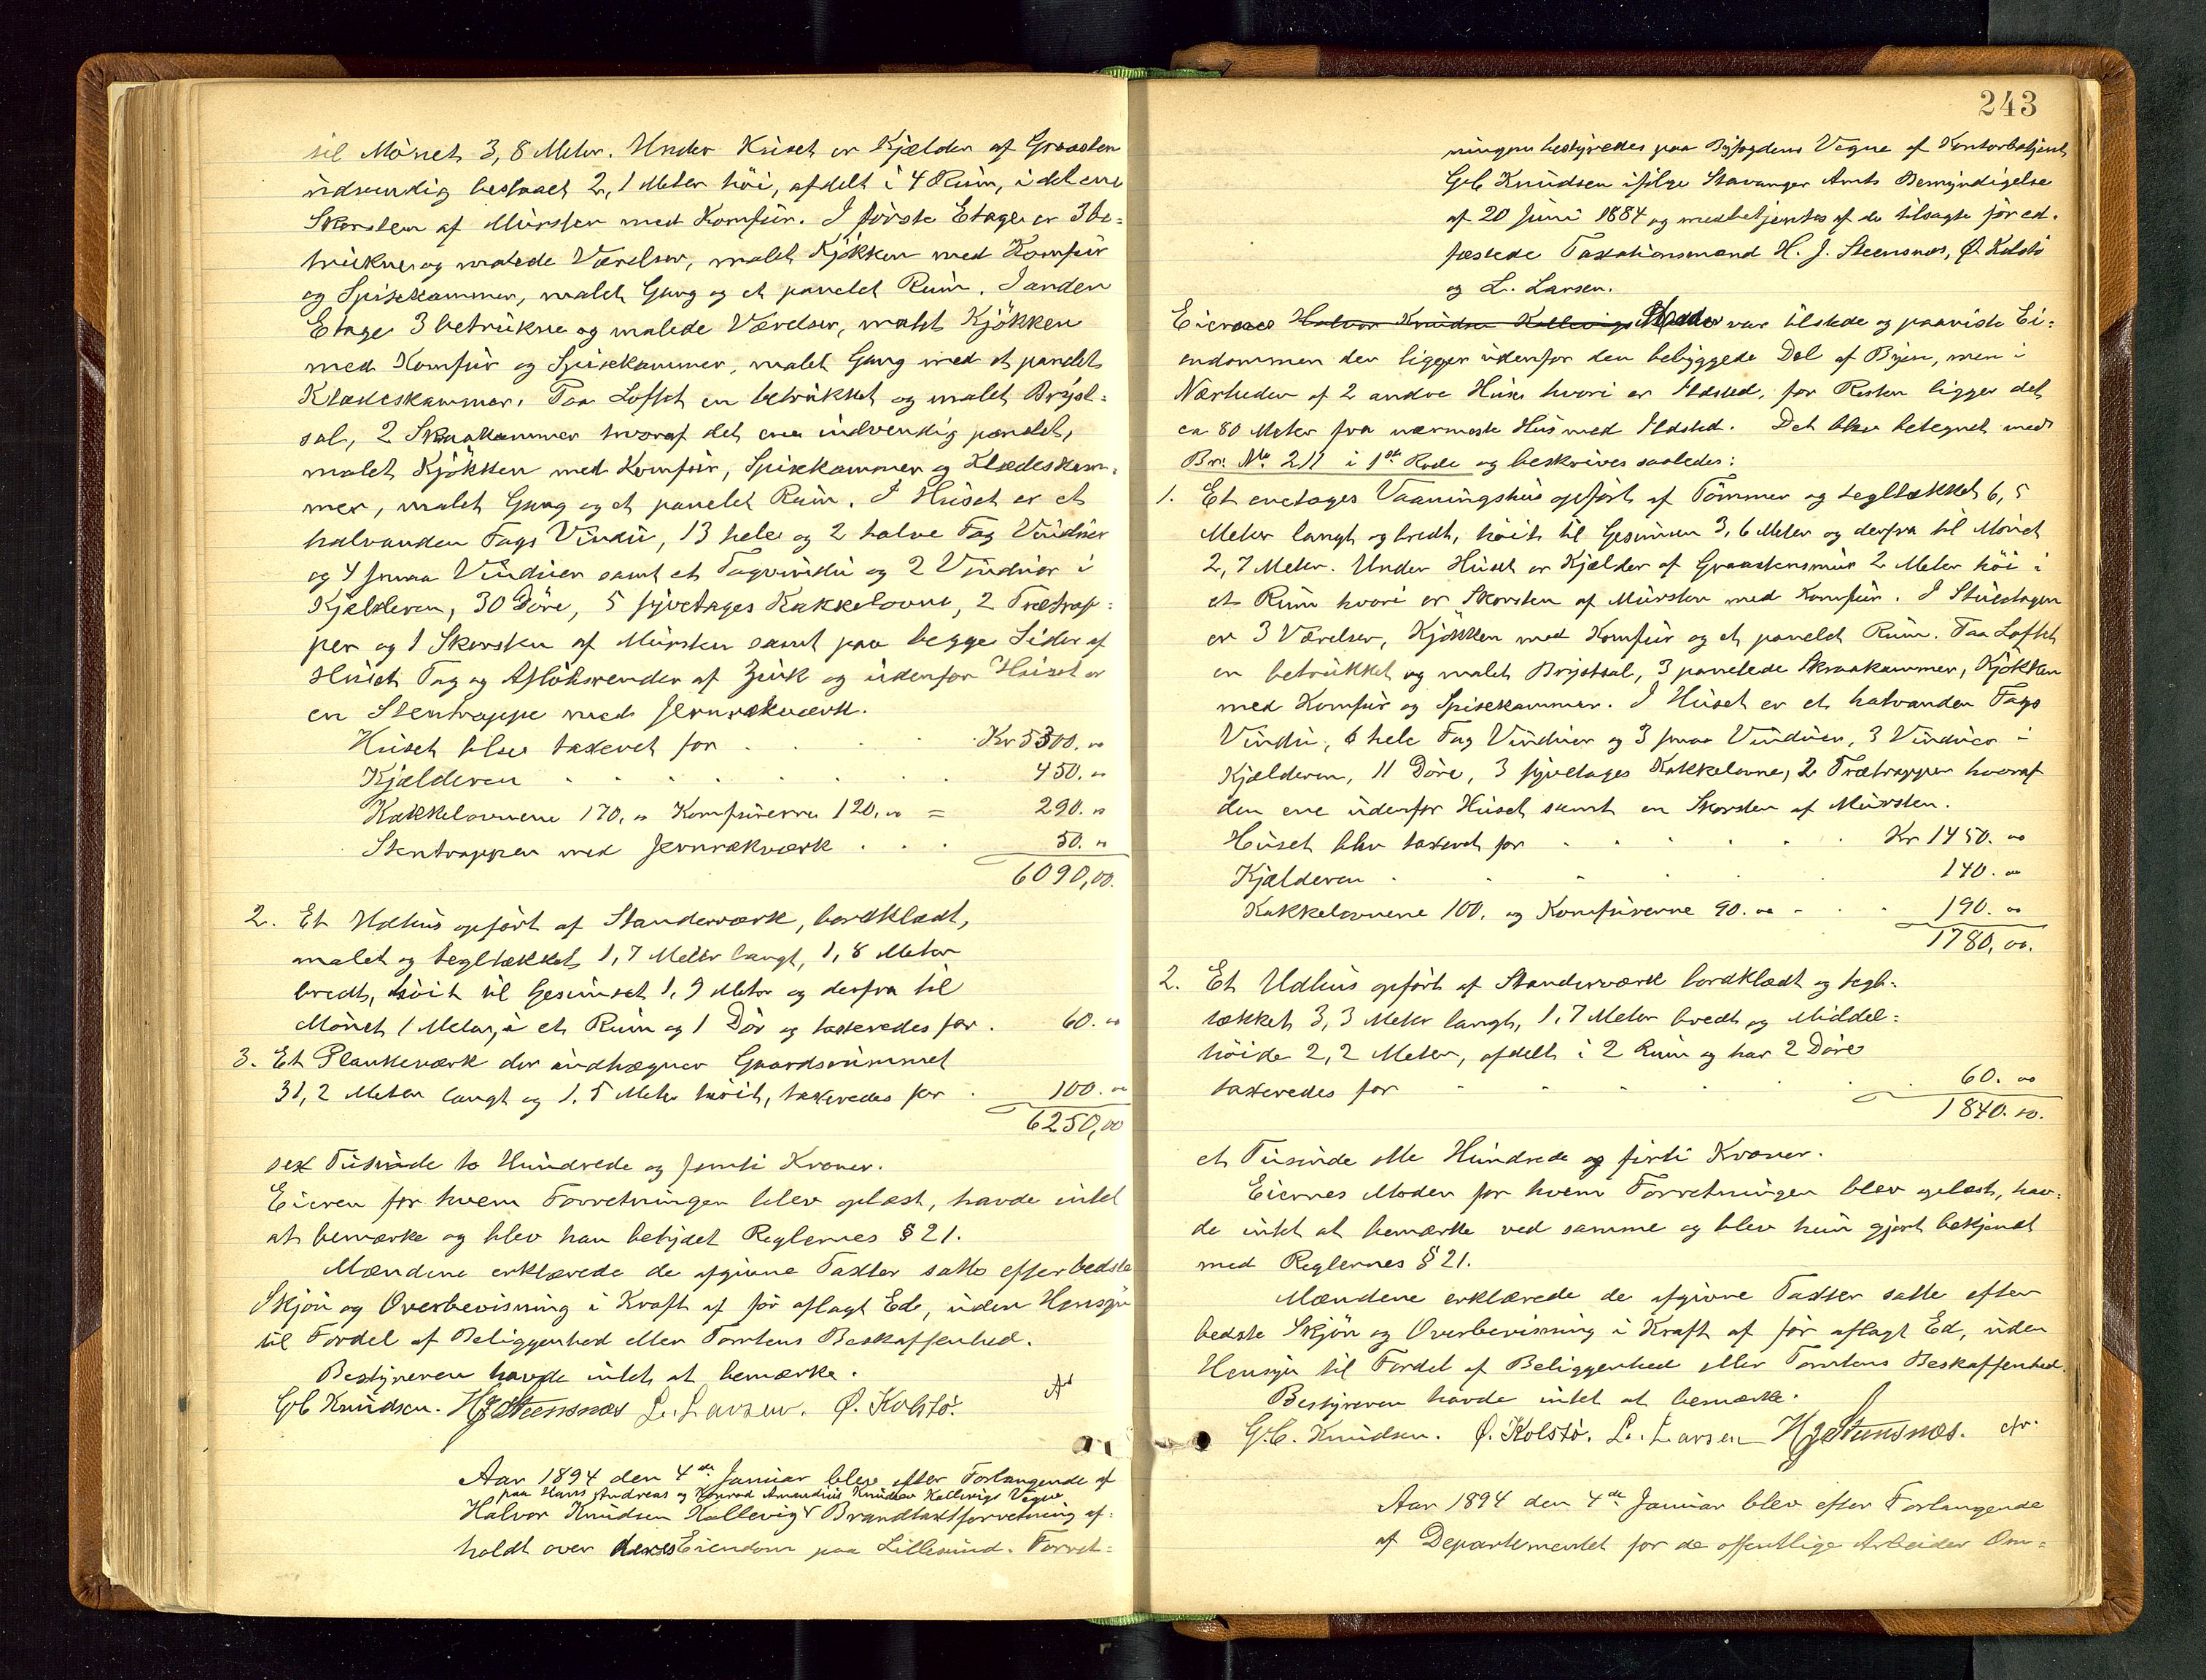 til Mönet 3,8 Meter. Under Huset er Kjælder af Graasten
udvendig beslaaet 2,1 Meter höi, afdelt i 4 Rum, i det ene
Skorsten af Mursten med Komfur. I förste Etage er 3 be=
trukne og malede Værelser, malet Kjökken med Komfur
og Spisekammer, malet Gang og et panelet Rum. I anden
Etage 3 betrukne og malede Værelser, malet Kjökken
med Komfur og Spisekammer, malet Gang med et panelet
Klædeskammer. Paa Loftet en betrukket og malet Bryst=
sal, 2 Skraakammer hvoraf det ene indvendig panelet,
malet Kjökken med Komfur, Spisekammer og Klædeskam=
mer, malet Gang og et panelet Rum. I Huset er et
halvanden Fags Vindu, 13 hele og 2 halve Fag Vinduer
og 4 smaa Vinduer samt et Tagvindu og 2 Vinduer i
Kjælderen, 30 Döre, 5 syvetages Kakkelovne, 2 Trætrap=
per og 1 Skorsten af Mursten samt paa begge Sider af
Huset Tag og Aflöbsrender af Zink og udenfor Huset er
en Stentrappe med Jernrækværk.
Huset blev taxeret for . . . . Kr 5300. "
Kjælderen . . . . . . . 450. "
Kakkelovnene 170, " Komfurerne 120, " = 290. "
Stentrappen med Jernrækværk . . . 50. "
6090,00.
2. Et Udhus opfört af Standerværk, bordklædt,
malet og tegltækket 1,7 Meter langt, 1,8 Meter
bredt, höit til Gesimset 1,9 Meter og derfra til
Mönet 1 Meter, i et Rum og 1 Dör og taxeredes for . 60. "
3. Et Plankeværk der indhægner Gaardsrummet
31,2 Meter langt og 1,5 Meter höit, taxeredes for . 100. "
6250,00
sex Tusinde to Hundrede og femti Kroner.
Eieren for hvem Forretningen blev oplæst, havde intet
at bemærke og blev han betydet Reglernes § 21.
Mændene erklærede de afgivne Taxter satte efter bedste
Skjön og Overbevisning i Kraft af för aflagt Ed, uden Hensyn
til Fordel af Beliggenhed eller Tomtens Beskaffenhed.
Bestyreren havde intet at bemærke.
G.C. Knudsen. HJSteensnæs L. Larsen. Ø. Kolstö.
Aar 1894 den 4de Januar blev efter Forlangende af
paa Hans Andreas og Konrad Amandius Knudsen Kallevigs Vegne
Halvor Knudsen Kallevig Brandtaxtforretning af=
holdt over deres Eiendom paa Lillesund. Forret=
243
ningen bestyredes paa Byfogdens Vegne af Kontorbetjent
G.C. Knudsen ifölge Stavanger Amts Bemyndigelse
af 20 Juni 1884 og medbetjentes af de tilsagte för ed=
fæstede Taxationsmænd H. J. Steensnæs, Ø. Kolstö
og L. Larsen.
Eiernes Halvor Knudsen Kallevigs Moder var tilstede og paaviste Ei=
endommen der ligger udenfor den bebyggede Del af Byen, men i
Nærheden af 2 andre Huse hvori er Ildsted, for Resten ligger det
ca 80 Meter fra nærmeste Hus med Ildsted. Det blev betegnet med
Br: No 211 i 1ste Rode og beskrives saaledes:
1. Et enetages Vaaningshus opfört af Tömmer og tegltækket 6,5
Meter langt og bredt, höit til Gesimsen 3,6 Meter og derfra til Mönet
2,7 Meter. Under Huset er Kjælder af Graastensmur 2 Meter höi i
et Rum hvori er Skorsten af Mursten med Komfur. I Stuetagen
er 3 Værelser, Kjökken med Komfur og et panelet Rum. Paa Loftet
en betrukket og malet Brystsal, 3 panelede Skraakammer, Kjökken
med Komfur og Spisekammer. I Huset er et halvanden Fags
Vindu, 6 hele Fag Vinduer og 3 smaa Vinduer, 3 Vinduer i
Kjælderen, 11 Döre, 3 syvetages Kakkelovne, 2 Trætrapper hvoraf
den ene udenfor Huset samt en Skorsten af Mursten.
Huset blev taxeret for . . . . . Kr 1450. "
Kjælderen . . . . . 140. "
Kakkelovnene 100, og Komfurerne 90. " . . . 190. "
1780,00.
2. Et Udhus opfört af Standerværk bordklædt og tegl=
tækket 3,3 Meter langt, 1,7 Meter bredt og Middel=
höide 2,2 Meter, afdelt i 2 Rum og har 2 Döre
taxeredes for . . . . . 60. "
1840.00.
et Tusinde otte Hundrede og firti Kroner.
Eiernes Moder for hvem Forretningen blev oplæst, hav=
de intet at bemærke ved samme og blev hun gjort bekjendt
med Reglernes § 21.
Mændene erklærede de afgivne Taxter satte efter
bedste Skjön og Overbevisning i Kraft af för aflagt Ed, uden
Hensyn til Fordel af Beliggenhed eller Tomtens Beskaffenhed.
Bestyreren havde intet at bemærke.
G.C. Knudsen. Ø. Kolstö. L. Larsen HJSteensnæs.
Aar 1894 den 4de Januar blev efter Forlangende
af Departementet for de offentlige Arbeider Om=